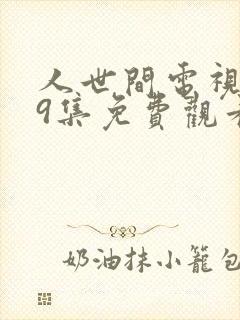 人世間電視
9集免費觀看
奶油抹小籠包